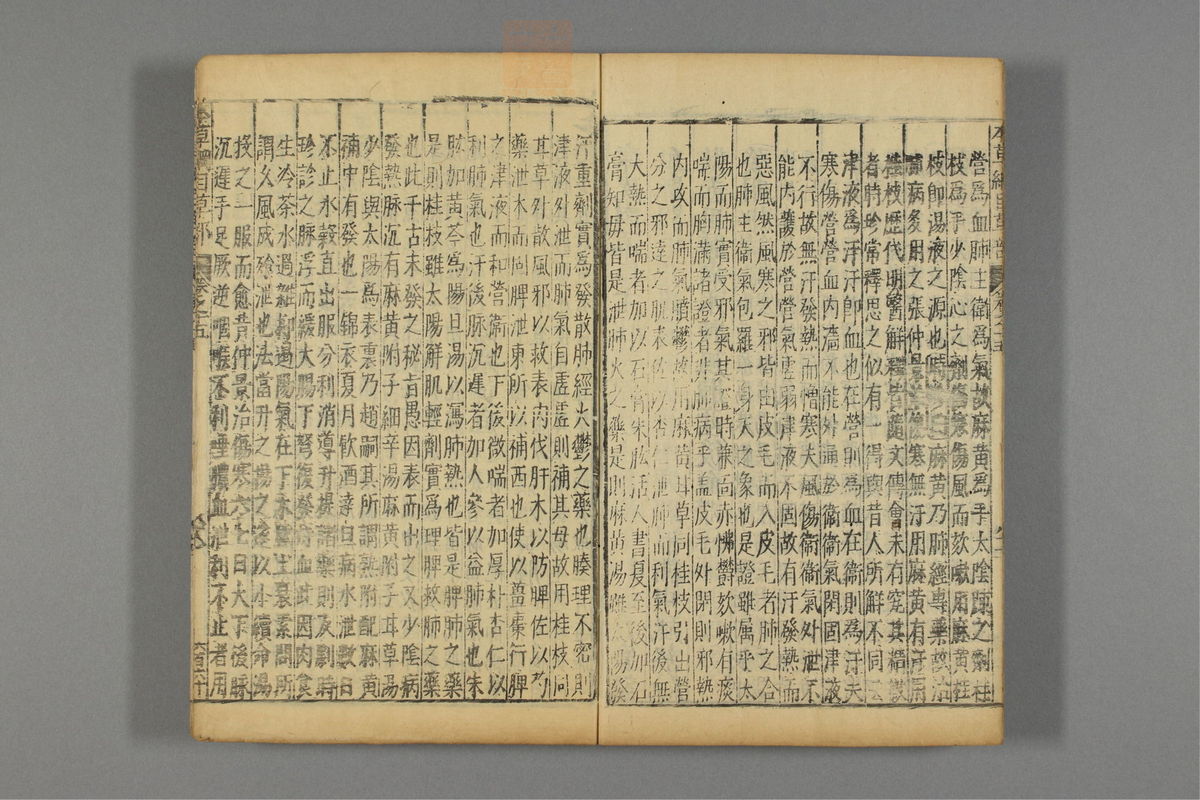 營爲血肺主衛爲氣故麻黄爲手太陰肺之劑桂
枝爲手少陰心之劑傷寒傷風而欬嗽用麻黄桂
枝即湯液之源也時珍曰麻黄乃肺經專藥故治
肺病多用之張仲景治傷寒無汗用麻黄有汗用
桂枝歷代明醫解釋皆隨文傳會未有究其精微
者時珍常釋思之似有一得與昔人所解不同云
津液爲汗汗即血也在營則爲血在衛則爲汗夫
寒傷營營血内濇不能外通於衛衛氣閉固津液
不行故無汗發熱而憎寒夫風傷衛衛氣外泄不
能内護於營營氣虛弱津液不固故有汗發熱而
惡風然風寒之邪皆由皮毛而入皮毛者肺之合
也肺主衛氣包羅一身天之象也是證雖属乎太
陽而肺實受邪氣其證時兼面赤怫鬱欬嗽有痰
喘而胸滿諸證者非肺病乎蓋皮毛外閉則邪熱
内攻而肺氣膹鬱故用麻黄甘草同桂枝引出營
分之邪達之肌表佐以杏仁泄肺而利氣汗後無
大熱而喘者加以石膏朱肱活人書夏至後加石
膏知母皆是泄肺火之藥是則麻黄湯雖太陽發
汗重劑實爲發散肺經火鬱之藥也腠理不密則
津液外泄而肺氣自虛虛則補其母故用桂枝同
甘草外散風邪以救表内伐肝木以防脾佐以芍
藥泄木而固脾泄東所以補西也使以薑棗行脾
之津液而和營衛也下後微喘者加厚朴杏仁以
利肺氣也汗後脉沉遲者加人參以益肺氣也朱
肱加黄芩爲陽旦湯以瀉肺熱也皆是脾肺之藥
是則桂枝雖太陽解肌輕劑實爲理脾救肺之藥
也此千古未發之秘旨愚因表而出之又少陰病
發熱脉沉有麻黄附子細辛湯麻黄附子甘草湯
少陰與太陽爲表裏乃趙嗣真所謂熟附配麻黄
補中有發也一錦衣夏月飲酒達旦病水泄數日
不止水穀直出服分利消導升提諸藥則反劇時
珍診之脉浮而緩大腸下弩復發痔血此因肉食
生冷茶水過雜抑遏陽氣在下木盛土衰素問所
謂久風成飱泄也法當升之揚之遂以小續命湯
投之一服而愈昔仲景治傷寒六七日大下後脉
沉遲手足厥逆咽喉不利唾膿血泄利不止者用